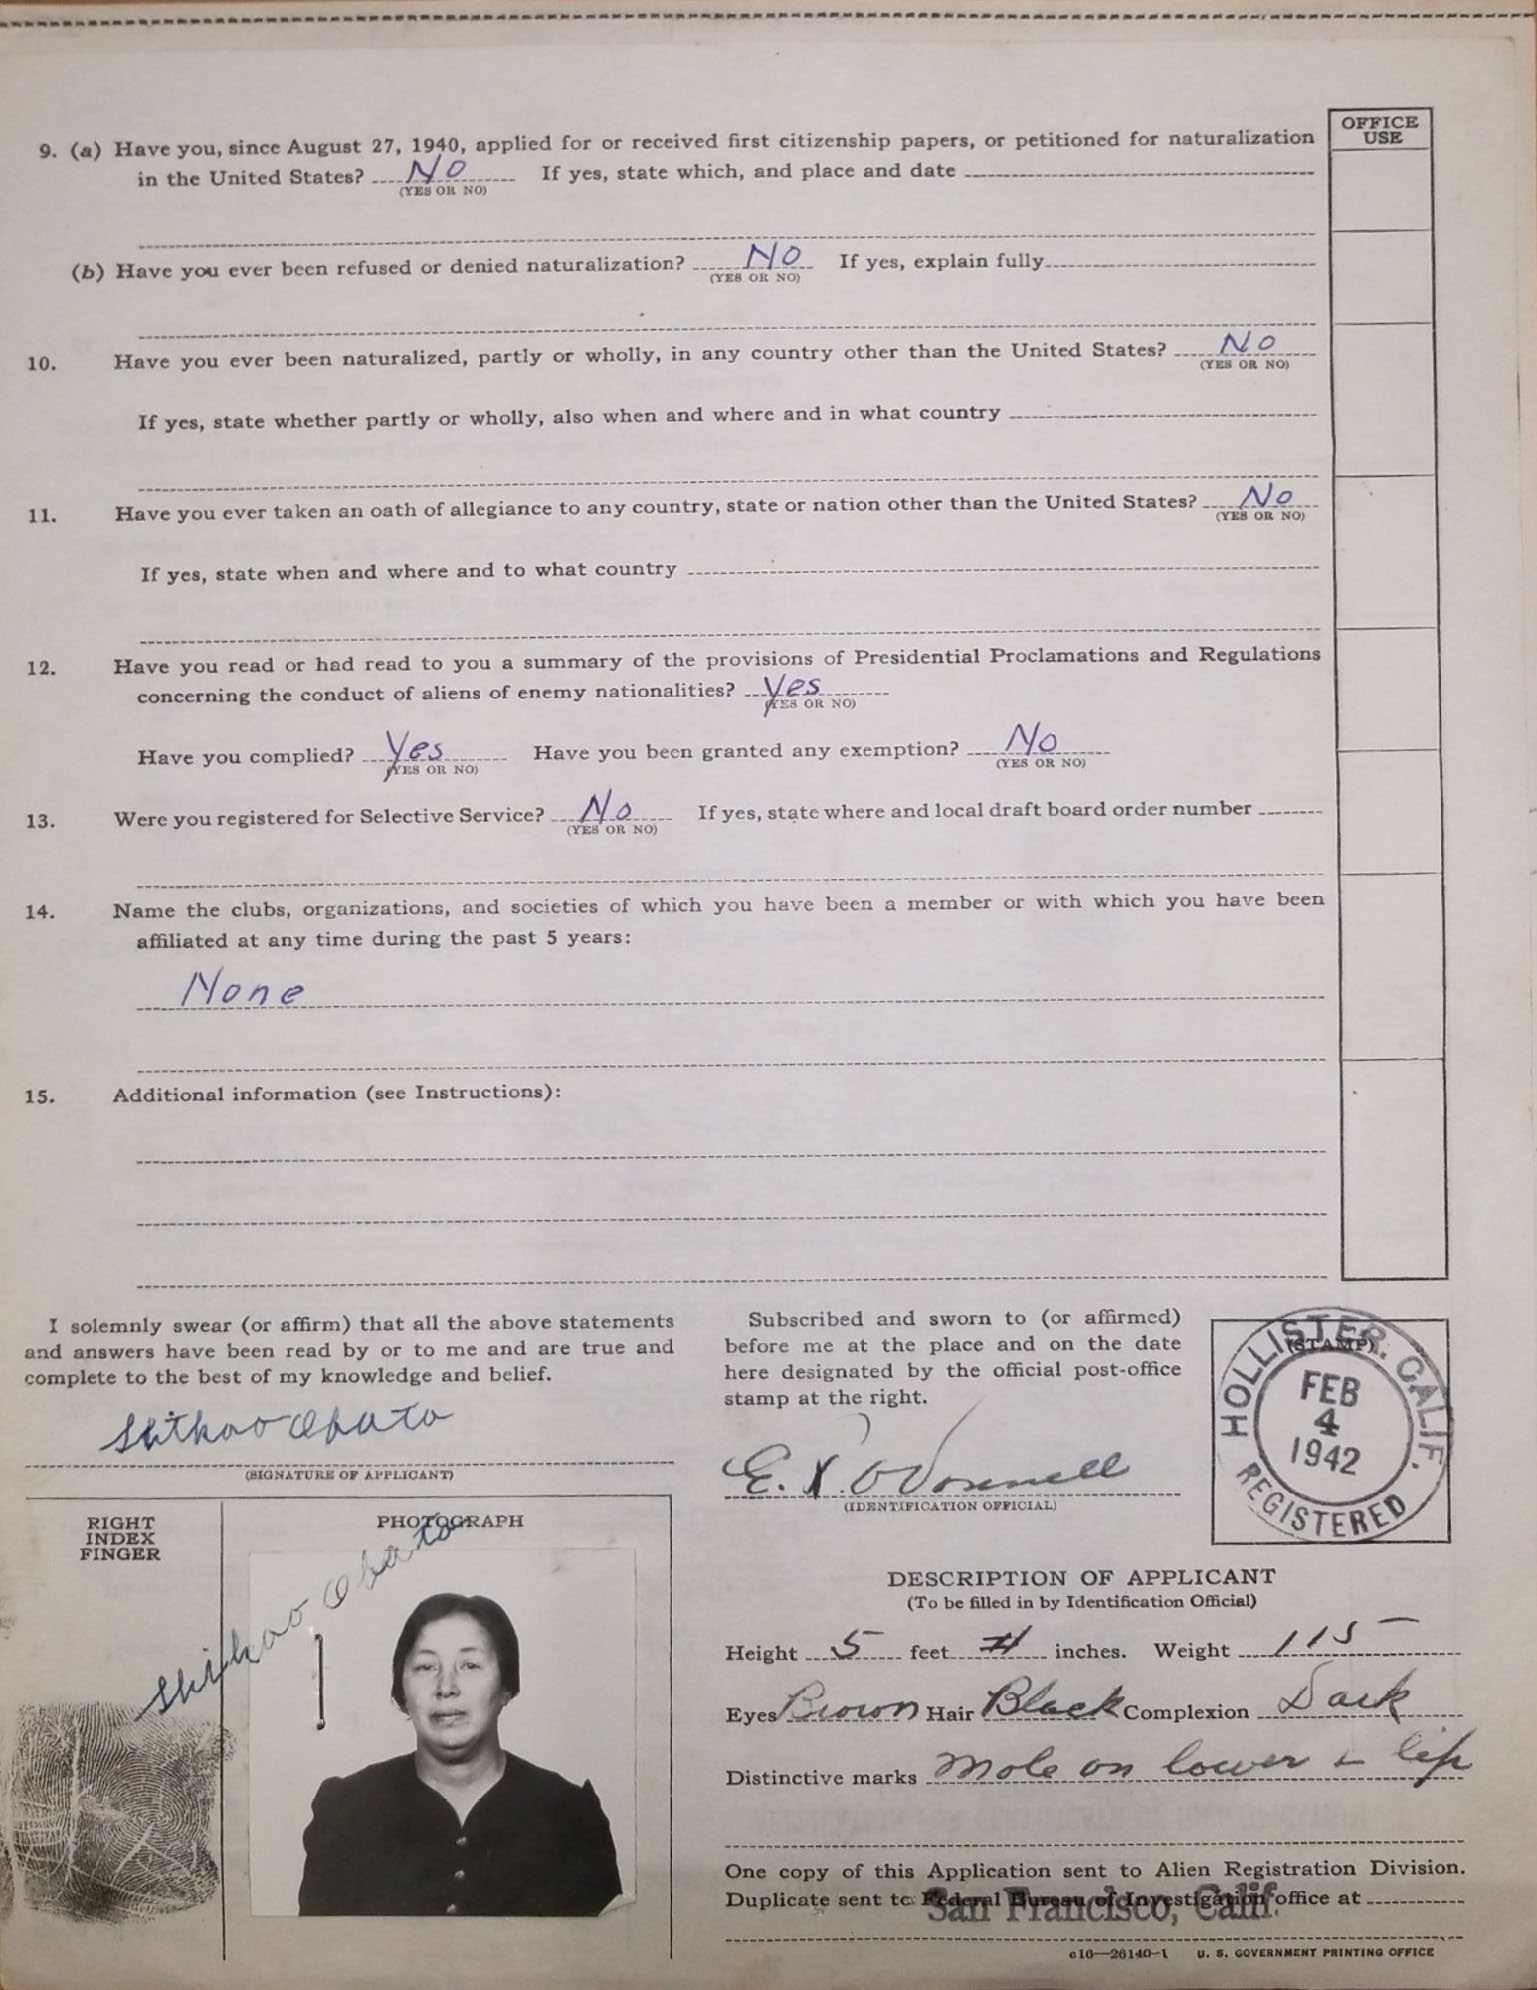 OFFICE
USE
9. (a) Have you, since August 27, 1940, applied for or received first citizenship papers, or petitioned for naturalization
in the United States? No If yes, state which, and place and date
(YES OR NO)
(b) Have you ever been refused or denied naturalization? No If yes, explain fully
(YES OR NO)
10. Have you ever been naturalized, partly or wholly, in any country other than the United States? No
(YES OR NO)
If yes, state whether partly or wholly, also when and where and in what country
11. Have you ever taken an oath of allegiance to any country, state or nation other than the United States? No
(YES OR NO)
If yes, state when and where and to what country
12. Have you read or had read to you a summary of the provisions of Presidential Proclamations and Regulations
concerning the conduct of aliens of enemy nationalities? Yes
(YES OR NO)
Have you complied? Yes Have you been granted any exemption? No
(YES OR NO) (YES OR NO)
13. Were you registered for Selective Service? No If yes, state where and local draft board order number
(YES OR NO)
14. Name the clubs, organizations, and societies of which you have been a member or with which you have been
affiliated at any time during the past 5 years:
None
15. Additional information (see Instructions):
I solemnly swear (or affirm) that all the above statements
and answers have been read by or to me and are true and
complete to the best of my knowledge and belief.
Obata
(SIGNATURE OF APPLICANT)
Subscribed and sworn to (or affirmed)
before me at the place and on the date
here designated by the official post-office
stamp at the right.
E. O'Donnell
(IDENTIFICATION OFFICIAL)
(STAMP)
HOLLISTER, CALIF.
FEB
4
1942
REGISTERED
RIGHT
INDEX
FINGER
PHOTOGRAPH
Obata
DESCRIPTION OF APPLICANT
(To be filled in by Identification Official)
Height 5 feet inches. Weight 115
Eyes Brown Hair Black Complexion Dark
Distinctive marks Mole on lower lip
One copy of this Application sent to Alien Registration Division.
Duplicate sent to Federal Bureau of Investigation office at
San Francisco, Calif.
c16—26140-1 U. S. GOVERNMENT PRINTING OFFICE